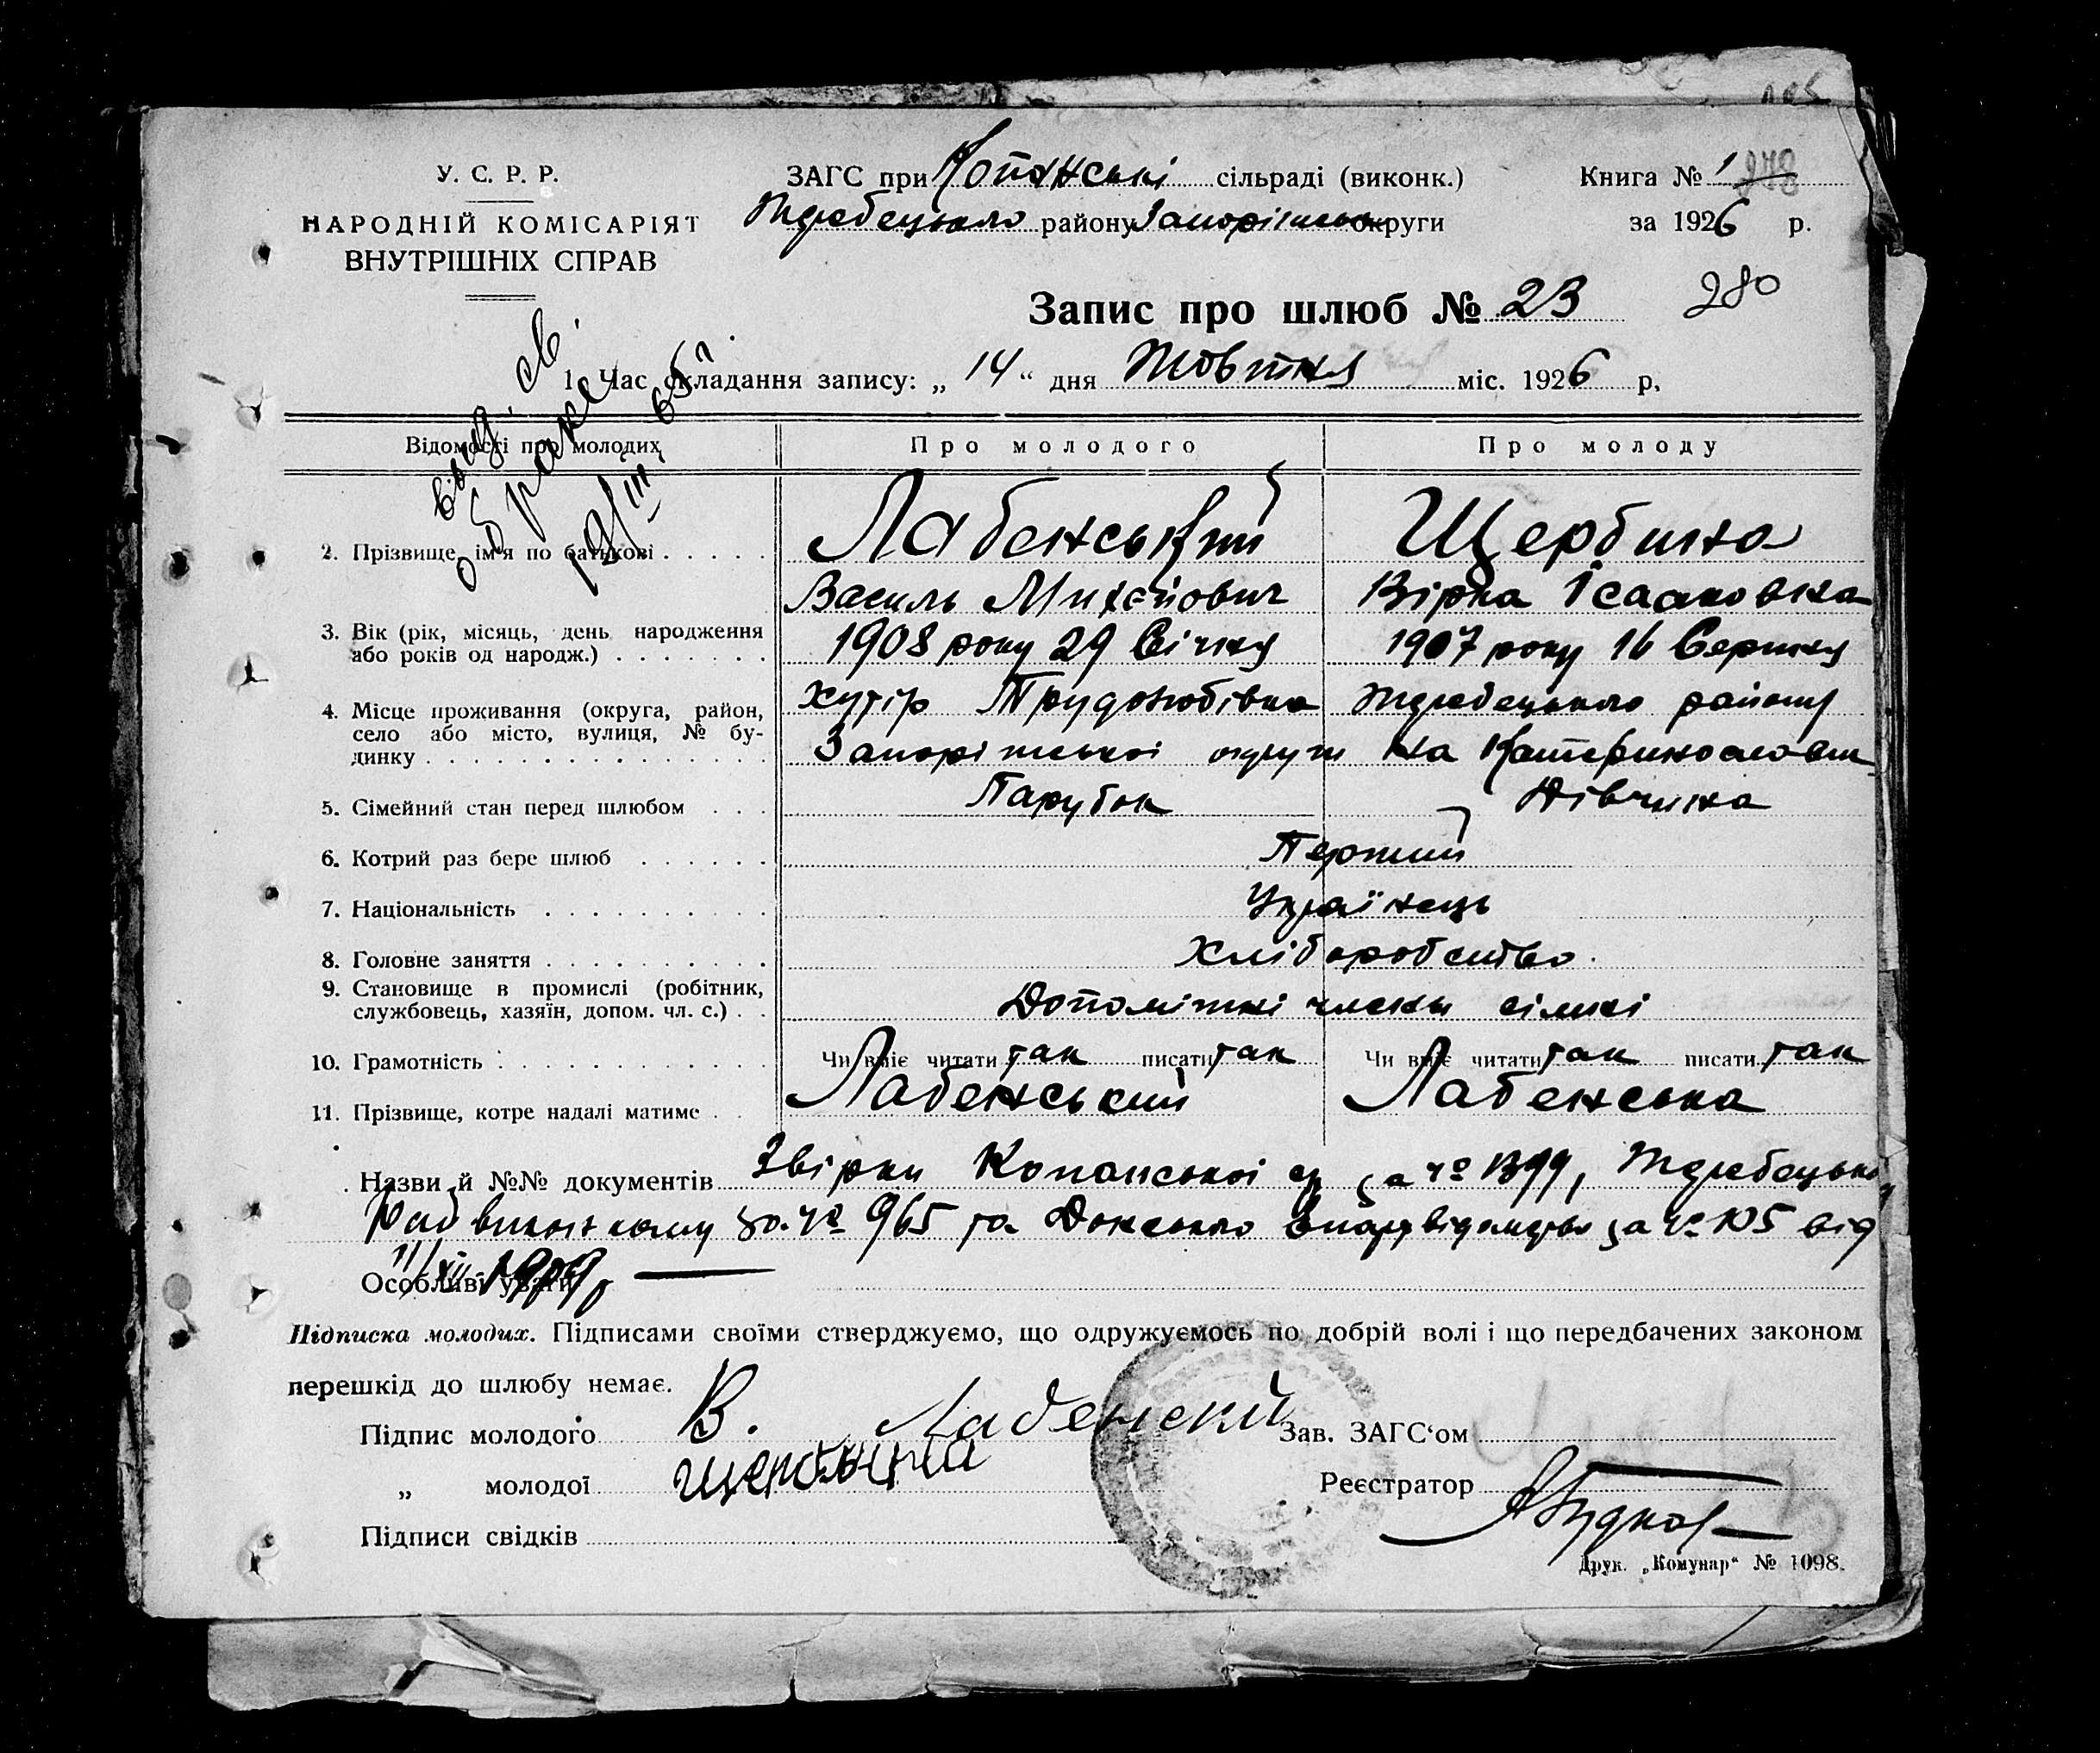 У. С. Р. Р.
НАРОДНІЙ КОМІСАРІЯТ
ВНУТРІШНІХ СПРАВ
ЗАГС при Копанські сільраді (виконк.)
Жеребецького району Запоріжської округи
Книга № 1 278
за 1926 р.
Запис про шлюб № 23
280
1. Час складання запису: „ 14 “ дня Жовтня міс. 1926 р.
выд. св.
о браке
12/III 65 г.
Відомості про молодих Про молодого Про молоду
2. Прізвище, ім'я по батькові Лабенський Щербина
Василь Михайович Вірка Ісааковна
3. Вік (рік, місяць, день народження
або років од народж.) 1908 року 29 Січня 1907 року 16 Серпня
4. Місце проживання (округа, район, Хутір Трудолюбівка Жеребецького району
село або місто, вулиця, № бу-
динку Запоріжської округи на Катеринославщ
5. Сімейний стан перед шлюбом Парубок Дівчина
6. Котрий раз бере шлюб Перший
7. Національність Українець
8. Головне заняття Хліборобство.
9. Становище в промислі (робітник,
службовець, хазяїн, допом. чл. с.) Допоміжні члени сімьі
10. Грамотність Чи вміє читати так писати так Чи вміє читати так писати так
11. Прізвище, котре надалі матиме Лабенський Лабенська
Назви й №№ документів Звірки Копанської за Жеребецько
Рай виконкому за № 965 та за № 105 від
Особливі уваги
Підписка молодих. Підписами своїми стверджуємо, що одружуємось по добрій волі і що передбачених законом
перешкід до шлюбу немає.
Підпис молодого В. Лабенский Зав. ЗАГС‘ом
„ молодої Щербина Реєстратор
Підписи свідків
Друк. „Комунар“ № 1098.